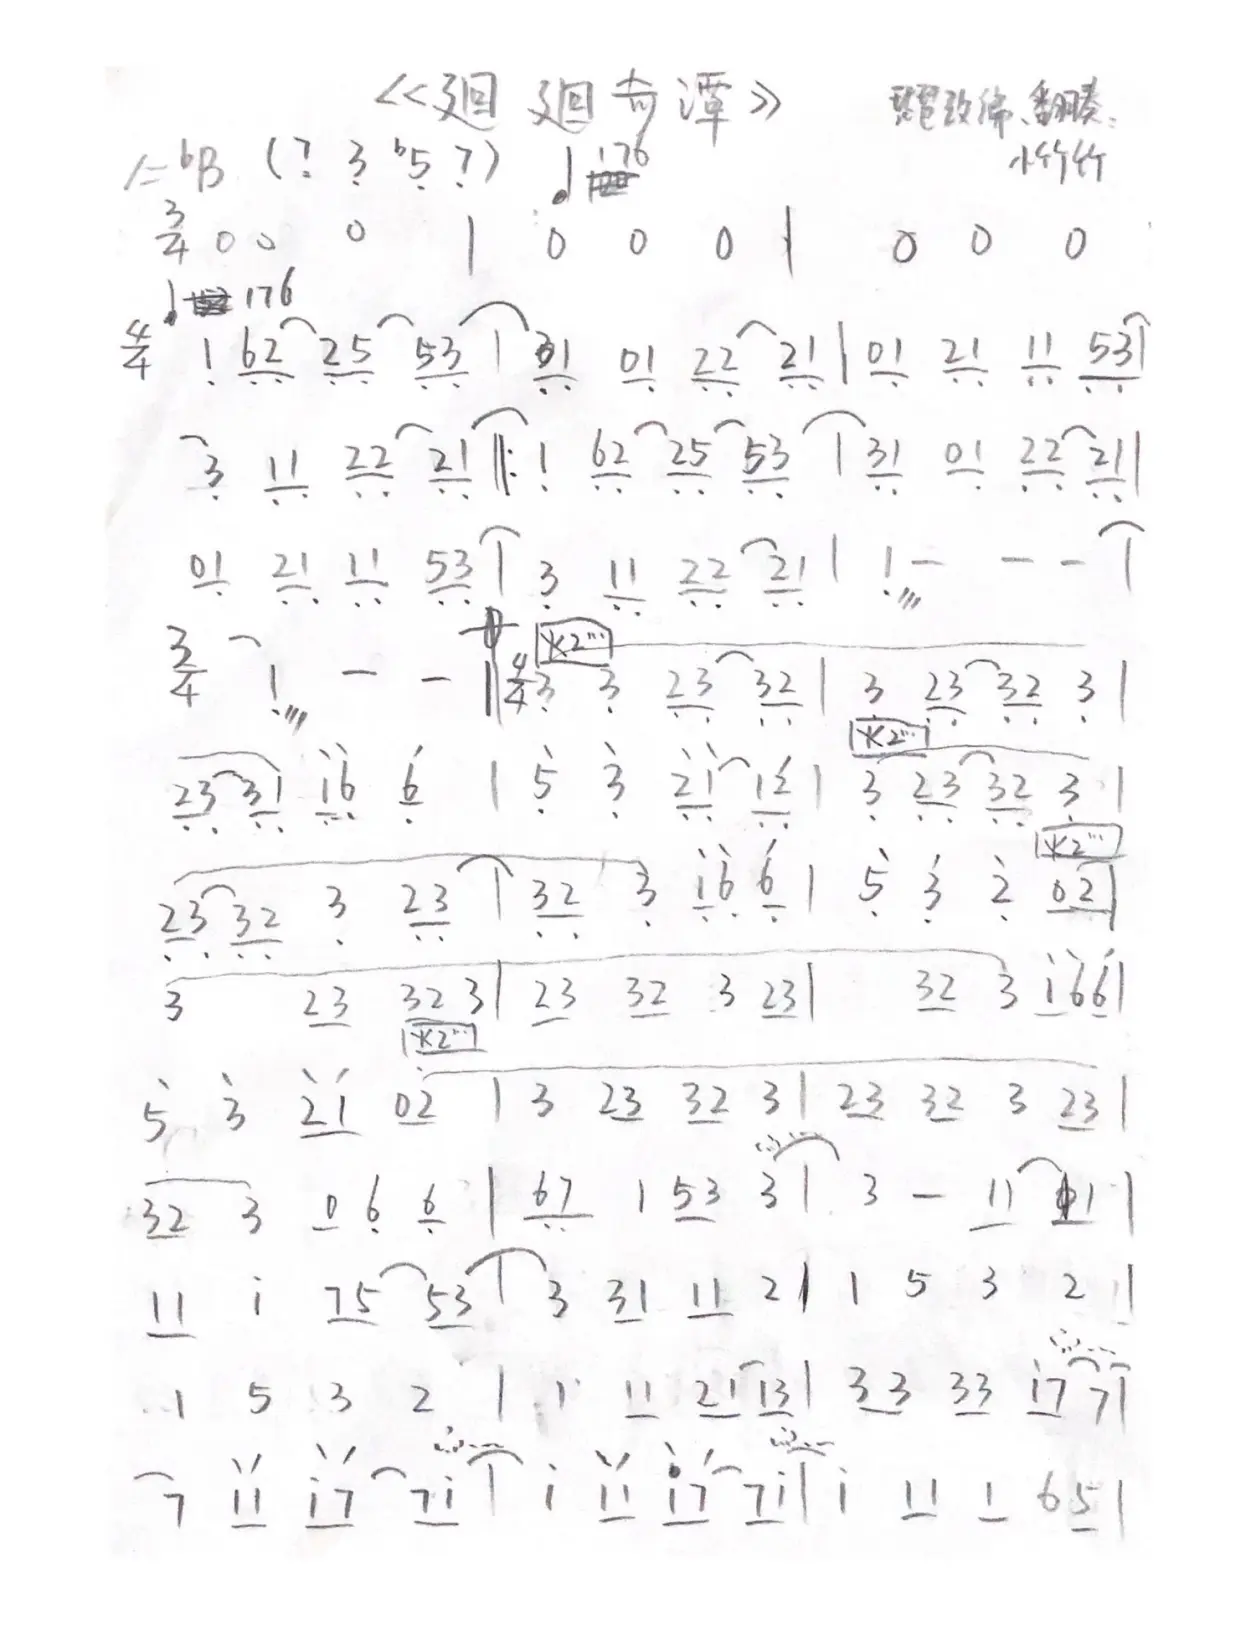 《廻廻奇潭》
耀改编、翻腾:
小竹竹
1=♭B (7 3 ♭5 7) ♩176
3/4 0 0 0 | 0 0 0 | 0 0 0
♩176
4/4 1 62 25 53 | 31 01 22 21 | 01 21 11 53 |
3 11 22 21 ‖: 1 62 25 53 | 31 01 22 21 |
01 21 11 53 | 3 11 22 21 | 1 - - - |
3/4 1 - - | 4/4 3 3 23 32 | 3 23 32 3 |
K2···
23 31 i6 6 | 5 3 21 12 | 3 23 32 3 |
K2···
23 32 3 23 | 32 3 i6 6 | 5 3 2 02 |
K2···
3 23 32 3 | 23 32 3 23 | 32 3 i66 |
K2···
5 3 21 02 | 3 23 32 3 | 23 32 3 23 |
32 3 0 6 6 | 67 1 53 3 | 3 - 11 11 |
11 i 75 53 | 3 31 11 2 | 1 5 3 2 |
1 5 3 2 | 1 11 21 13 | 33 33 i7 7 |
7 11 i7 7i | i 11 i7 7i | i 11 1 65 |